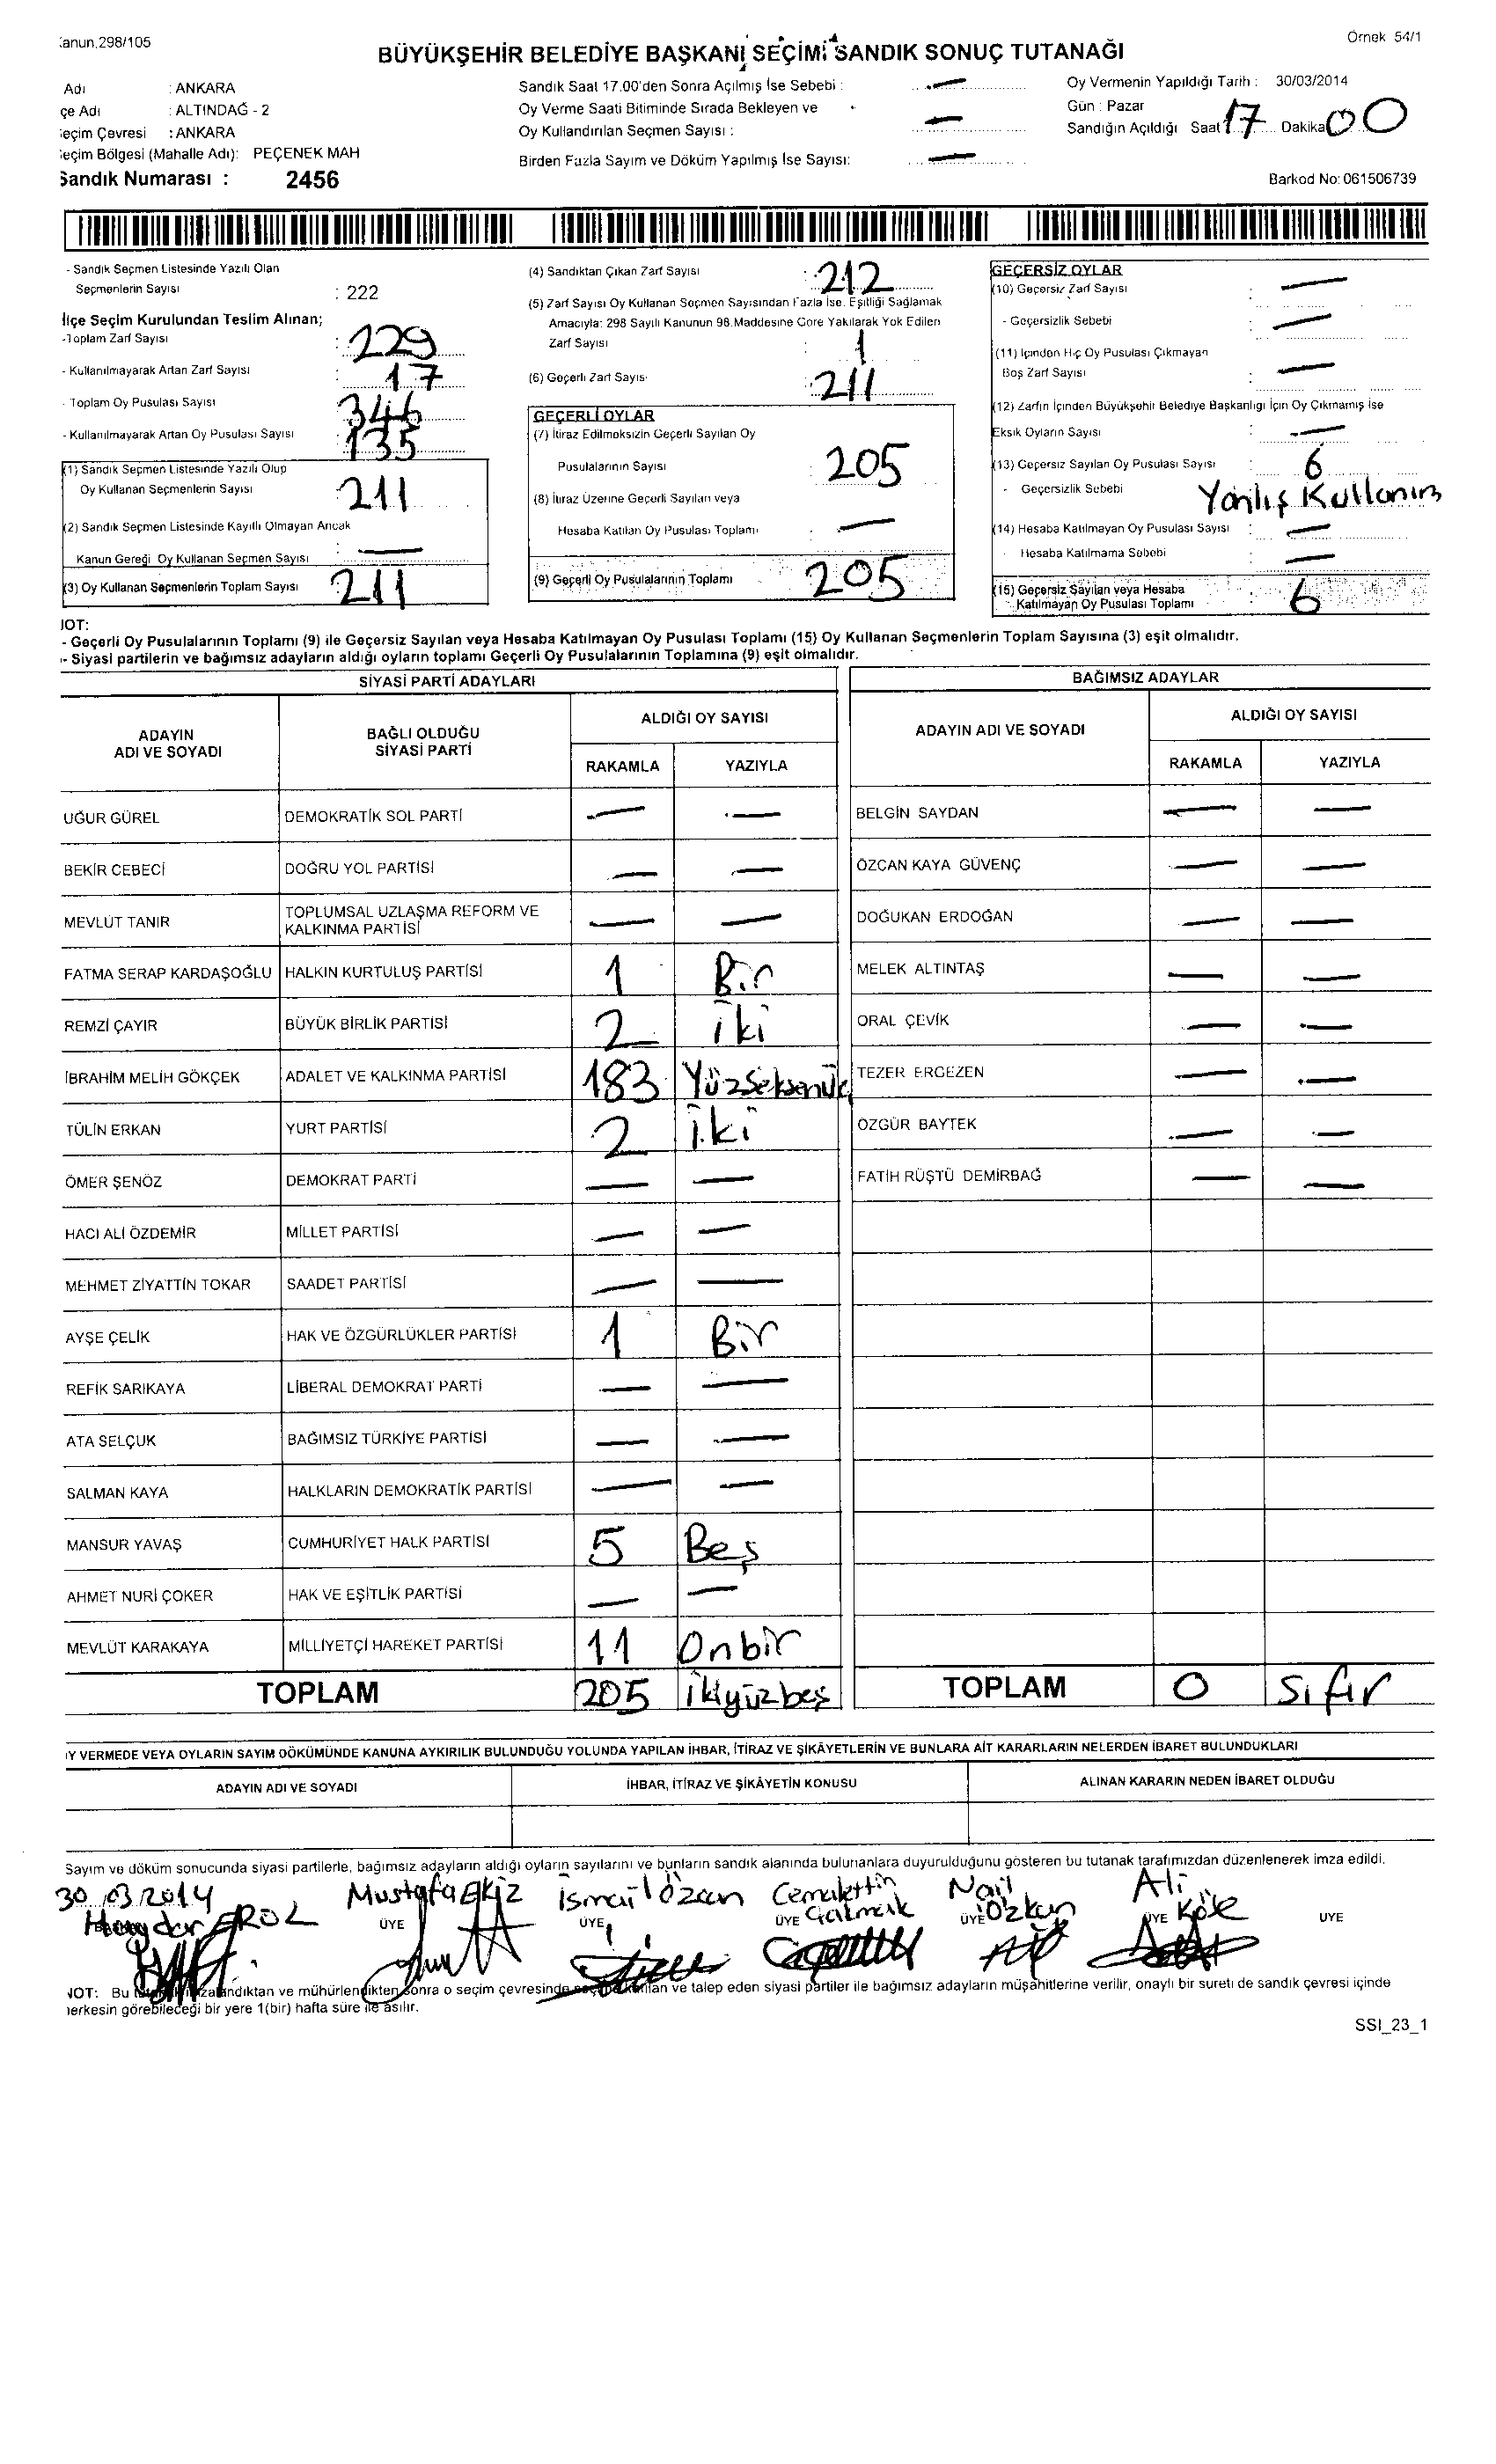 Kanun,298/105
Örnek 54/1
BÜYÜKŞEHİR BELEDİYE BAŞKANI SEÇİMİ SANDIK SONUÇ TUTANAĞI
Adı : ANKARA
çe Adı : ALTINDAĞ - 2
eçim Çevresi : ANKARA
eçim Bölgesi (Mahalle Adı): PEÇENEK MAH
Sandık Numarası : 2456
Sandık Saat 17.00'den Sonra Açılmış İse Sebebi : —
Oy Verme Saati Bitiminde Sırada Bekleyen ve
Oy Kullandırılan Seçmen Sayısı : —
Birden Fazla Sayım ve Döküm Yapılmış İse Sayısı: —
Oy Vermenin Yapıldığı Tarih : 30/03/2014
Gün : Pazar
Sandığın Açıldığı Saat 17 Dakika 00
Barkod No: 061506739
- Sandık Seçmen Listesinde Yazılı Olan
Seçmenlerin Sayısı : 222
İlçe Seçim Kurulundan Teslim Alınan;
-Toplam Zarf Sayısı : 229
- Kullanılmayarak Artan Zarf Sayısı : 17
- Toplam Oy Pusulası Sayısı 346
- Kullanılmayarak Artan Oy Pusulası Sayısı : 135
(1) Sandık Seçmen Listesinde Yazılı Olup
Oy Kullanan Seçmenlerin Sayısı : 211
(2) Sandık Seçmen Listesinde Kayıtlı Olmayan Ancak
Kanun Gereği Oy Kullanan Seçmen Sayısı : —
(3) Oy Kullanan Seçmenlerin Toplam Sayısı 211
(4) Sandıktan Çıkan Zarf Sayısı : 212
(5) Zarf Sayısı Oy Kullanan Seçmen Sayısından Fazla İse, Eşitliği Sağlamak
Amacıyla: 298 Sayılı Kanunun 98.Maddesine Göre Yakılarak Yok Edilen
Zarf Sayısı : 1
(6) Geçerli Zarf Sayısı : 211
GEÇERLİ OYLAR
(7) İtiraz Edilmeksizin Geçerli Sayılan Oy
Pusulalarının Sayısı : 205
(8) İtiraz Üzerine Geçerli Sayılan veya
Hesaba Katılan Oy Pusulası Toplamı : —
(9) Geçerli Oy Pusulalarının Toplamı : 205
GEÇERSİZ OYLAR
(10) Geçersiz Zarf Sayısı : —
- Geçersizlik Sebebi : —
(11) İçinden Hiç Oy Pusulası Çıkmayan
Boş Zarf Sayısı : —
(12) Zarfın İçinden Büyükşehir Belediye Başkanlığı İçin Oy Çıkmamış İse
Eksik Oyların Sayısı : —
(13) Geçersiz Sayılan Oy Pusulası Sayısı : 6
- Geçersizlik Sebebi Yanlış Kullanım
(14) Hesaba Katılmayan Oy Pusulası Sayısı : —
- Hesaba Katılmama Sebebi : —
(15) Geçersiz Sayılan veya Hesaba
Katılmayan Oy Pusulası Toplamı : 6
NOT:
- Geçerli Oy Pusulalarının Toplamı (9) ile Geçersiz Sayılan veya Hesaba Katılmayan Oy Pusulası Toplamı (15) Oy Kullanan Seçmenlerin Toplam Sayısına (3) eşit olmalıdır.
- Siyasi partilerin ve bağımsız adayların aldığı oyların toplamı Geçerli Oy Pusulalarının Toplamına (9) eşit olmalıdır.
SİYASİ PARTİ ADAYLARI
ADAYIN ADI VE SOYADI BAĞLI OLDUĞU SİYASİ PARTİ ALDIĞI OY SAYISI RAKAMLA YAZIYLA
UĞUR GÜREL DEMOKRATİK SOL PARTİ — —
BEKİR CEBECİ DOĞRU YOL PARTİSİ — —
MEVLÜT TANIR TOPLUMSAL UZLAŞMA REFORM VE KALKINMA PARTİSİ — —
FATMA SERAP KARDAŞOĞLU HALKIN KURTULUŞ PARTİSİ 1 Bir
REMZİ ÇAYIR BÜYÜK BİRLİK PARTİSİ 2 iki
İBRAHİM MELİH GÖKÇEK ADALET VE KALKINMA PARTİSİ 183 Yüzseksenüç
TÜLİN ERKAN YURT PARTİSİ 2 iki
ÖMER ŞENÖZ DEMOKRAT PARTİ — —
HACI ALİ ÖZDEMİR MİLLET PARTİSİ — —
MEHMET ZİYATTİN TOKAR SAADET PARTİSİ — —
AYŞE ÇELİK HAK VE ÖZGÜRLÜKLER PARTİSİ 1 Bir
REFİK SARIKAYA LİBERAL DEMOKRAT PARTİ — —
ATA SELÇUK BAĞIMSIZ TÜRKİYE PARTİSİ — —
SALMAN KAYA HALKLARIN DEMOKRATİK PARTİSİ — —
MANSUR YAVAŞ CUMHURİYET HALK PARTİSİ 5 Beş
AHMET NURİ ÇOKER HAK VE EŞİTLİK PARTİSİ — —
MEVLÜT KARAKAYA MİLLİYETÇİ HAREKET PARTİSİ 11 Onbir
TOPLAM 205 ikiyüzbeş
BAĞIMSIZ ADAYLAR
ADAYIN ADI VE SOYADI ALDIĞI OY SAYISI RAKAMLA YAZIYLA
BELGİN SAYDAN — —
ÖZCAN KAYA GÜVENÇ — —
DOĞUKAN ERDOĞAN — —
MELEK ALTINTAŞ — —
ORAL ÇEVİK — —
TEZER ERGEZEN — —
ÖZGÜR BAYTEK — —
FATİH RÜŞTÜ DEMİRBAĞ — —
TOPLAM 0 Sıfır
IY VERMEDE VEYA OYLARIN SAYIM DÖKÜMÜNDE KANUNA AYKIRILIK BULUNDUĞU YOLUNDA YAPILAN İHBAR, İTİRAZ VE ŞİKÂYETLERİN VE BUNLARA AİT KARARLARIN NELERDEN İBARET BULUNDUKLARI
ADAYIN ADI VE SOYADI İHBAR, İTİRAZ VE ŞİKÂYETİN KONUSU ALINAN KARARIN NEDEN İBARET OLDUĞU
Sayım ve döküm sonucunda siyasi partilerle, bağımsız adayların aldığı oyların sayılarını ve bunların sandık alanında bulunanlara duyurulduğunu gösteren bu tutanak tarafımızdan düzenlenerek imza edildi.
30.03.2014 Mustafa Ekiz İsmail Özcan Cemalettin Nail Ali
EROL ÜYE ÜYE ÜYE ÜYE Özkan ÜYE Köse ÜYE
NOT: Bu tutanak imzalandıktan ve mühürlendikten sonra o seçim çevresinde seçime katılan ve talep eden siyasi partiler ile bağımsız adayların müşahitlerine verilir, onaylı bir sureti de sandık çevresi içinde
herkesin görebileceği bir yere 1(bir) hafta süre ile asılır.
SSI_23_1